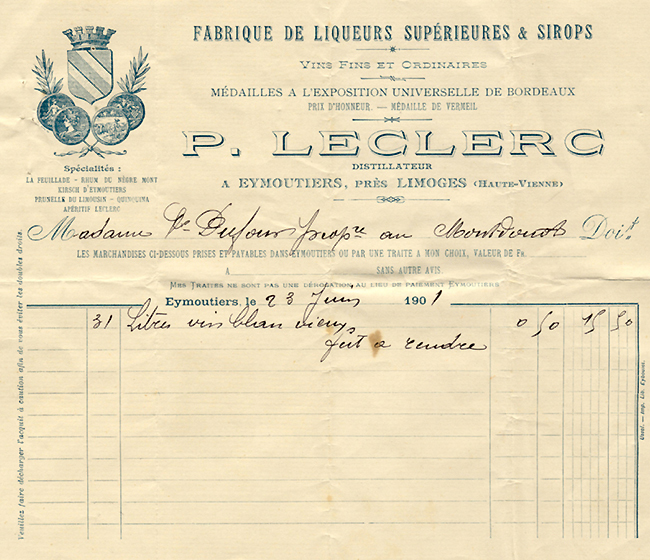 FABRIQUE DE LIQUEURS SUPÉRIEURES & SIROPS
VINS FINS ET ORDINAIRES
MÉDAILLES A L'EXPOSITION UNIVERSELLE DE BORDEAUX
PRIX D'HONNEUR. — MÉDAILLE DE VERMEIL
P. LECLERC
DISTILLATEUR
A EYMOUTIERS, PRÈS LIMOGES (HAUTE-VIENNE)
Spécialités :
LA FEUILLADE - RHUM DU NÈGRE MONT
KIRSCH D'EYMOUTIERS
PRUNELLE DU LIMOUSIN - QUINQUINA
APÉRITIF LECLERC
Madame Ve Dufour propre au Doit
LES MARCHANDISES CI-DESSOUS PRISES ET PAYABLES DANS EYMOUTIERS OU PAR UNE TRAITE A MON CHOIX, VALEUR DE FR.
A SANS AUTRE AVIS.
MES TRAITES NE SONT PAS UNE DÉROGATION AU LIEU DE PAIEMENT EYMOUTIERS
Eymoutiers, le 23 Juin 1901
31 Litres vin blan vieux 0 50 15 50
fut a rendre
Veuillez faire décharger l'acquit à caution afin de vous éviter les doubles droits.